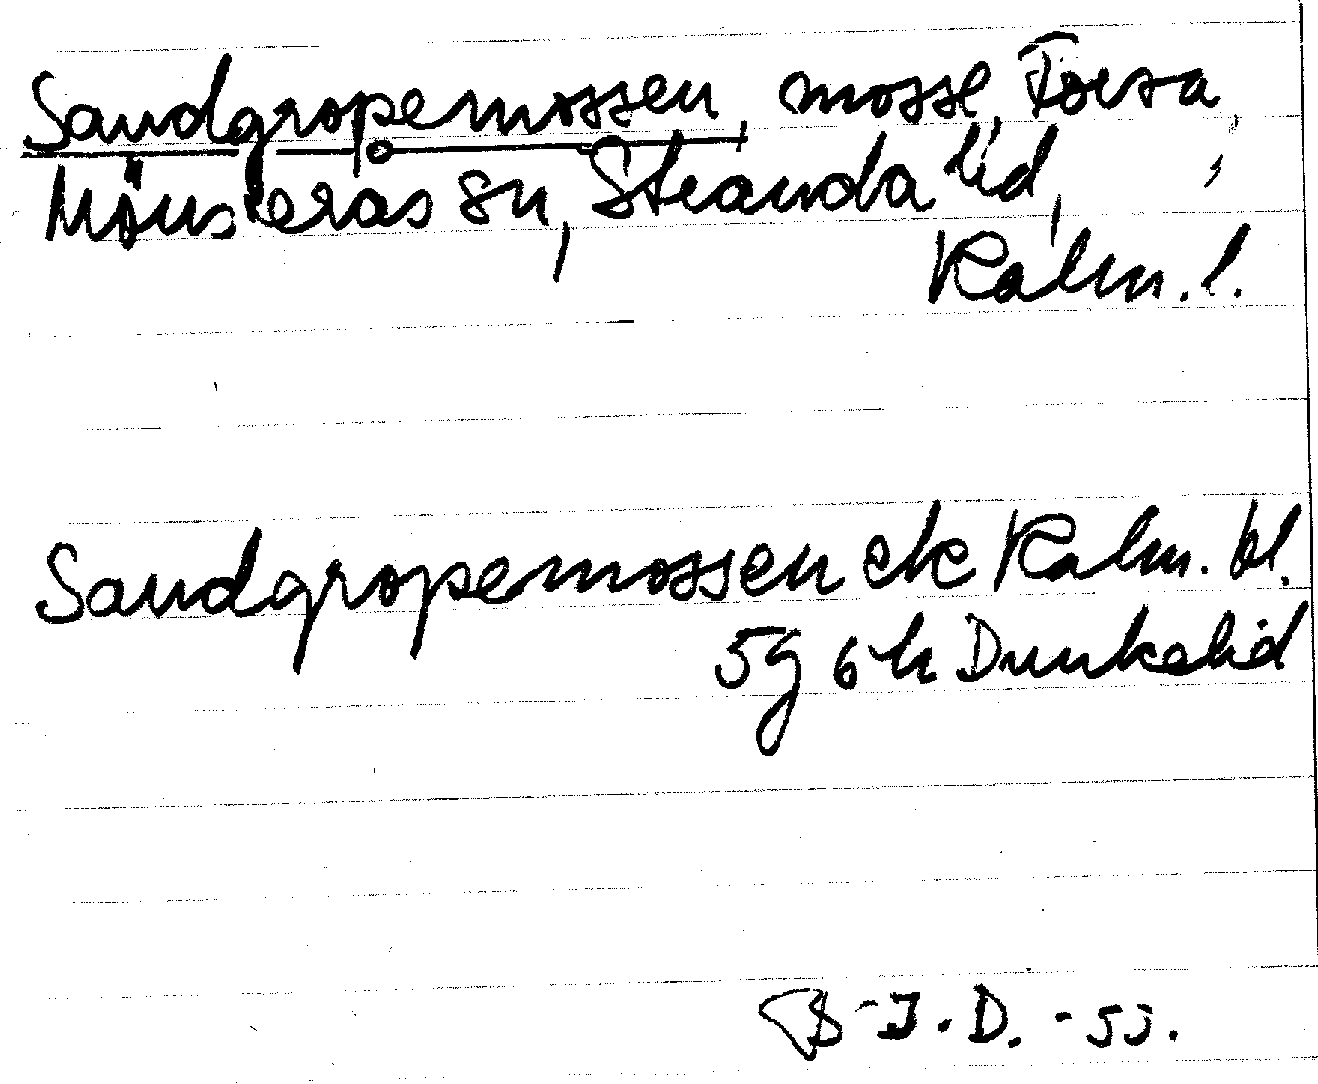 Sandgropemossen, mosse, Forsa,
Mönsterås sn, Stranda hd,
Kalm. l.
Sandgropemossen ek Kalm. bl.
5g 6h Dunkehid
B-J.D. -55.